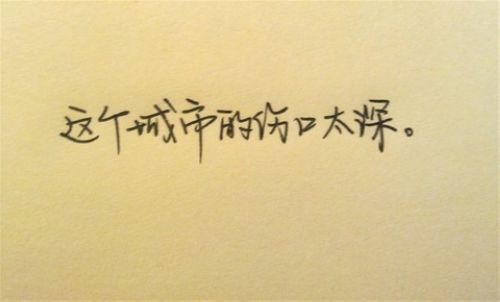 这个城市的伤口太深。